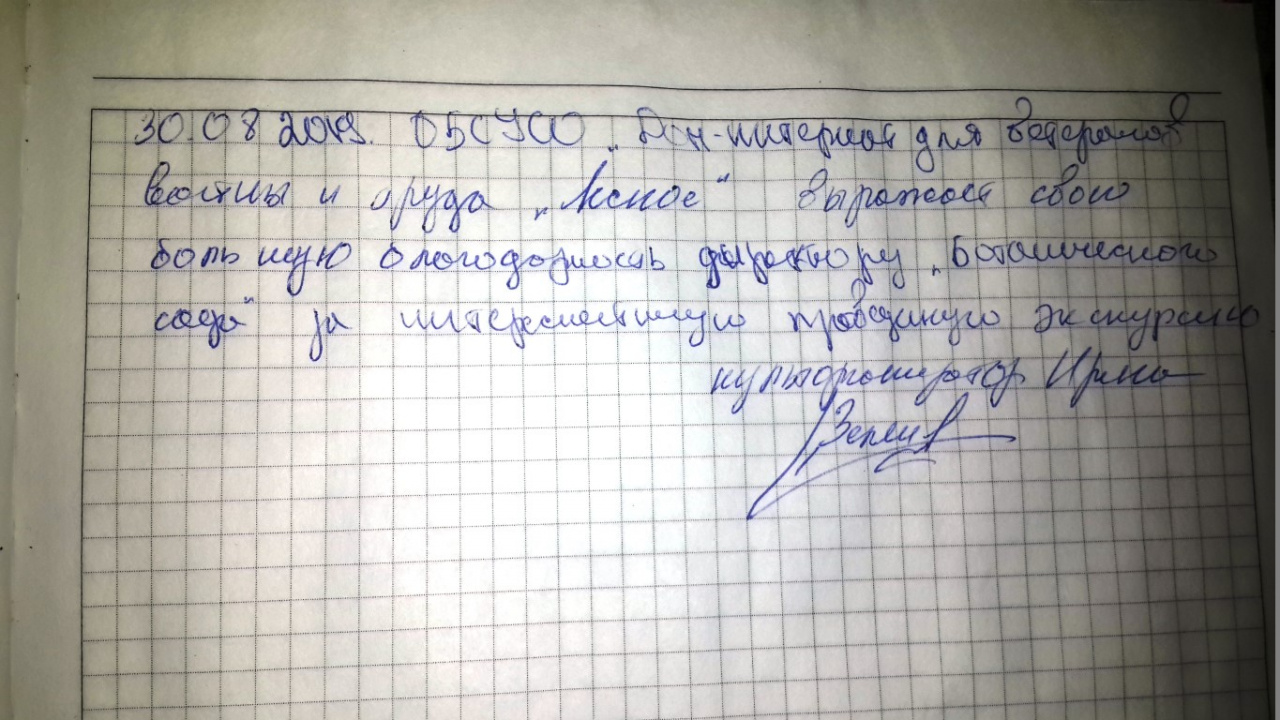 30.08.2019. ОБСУСО „Дом-интернат для ветеранов
войны и труда „Ясное“ выражает свою
большую благодарность директору „Ботанического
сада“ за интереснейшую проведеную экскурсию
культорганизатор Ирина